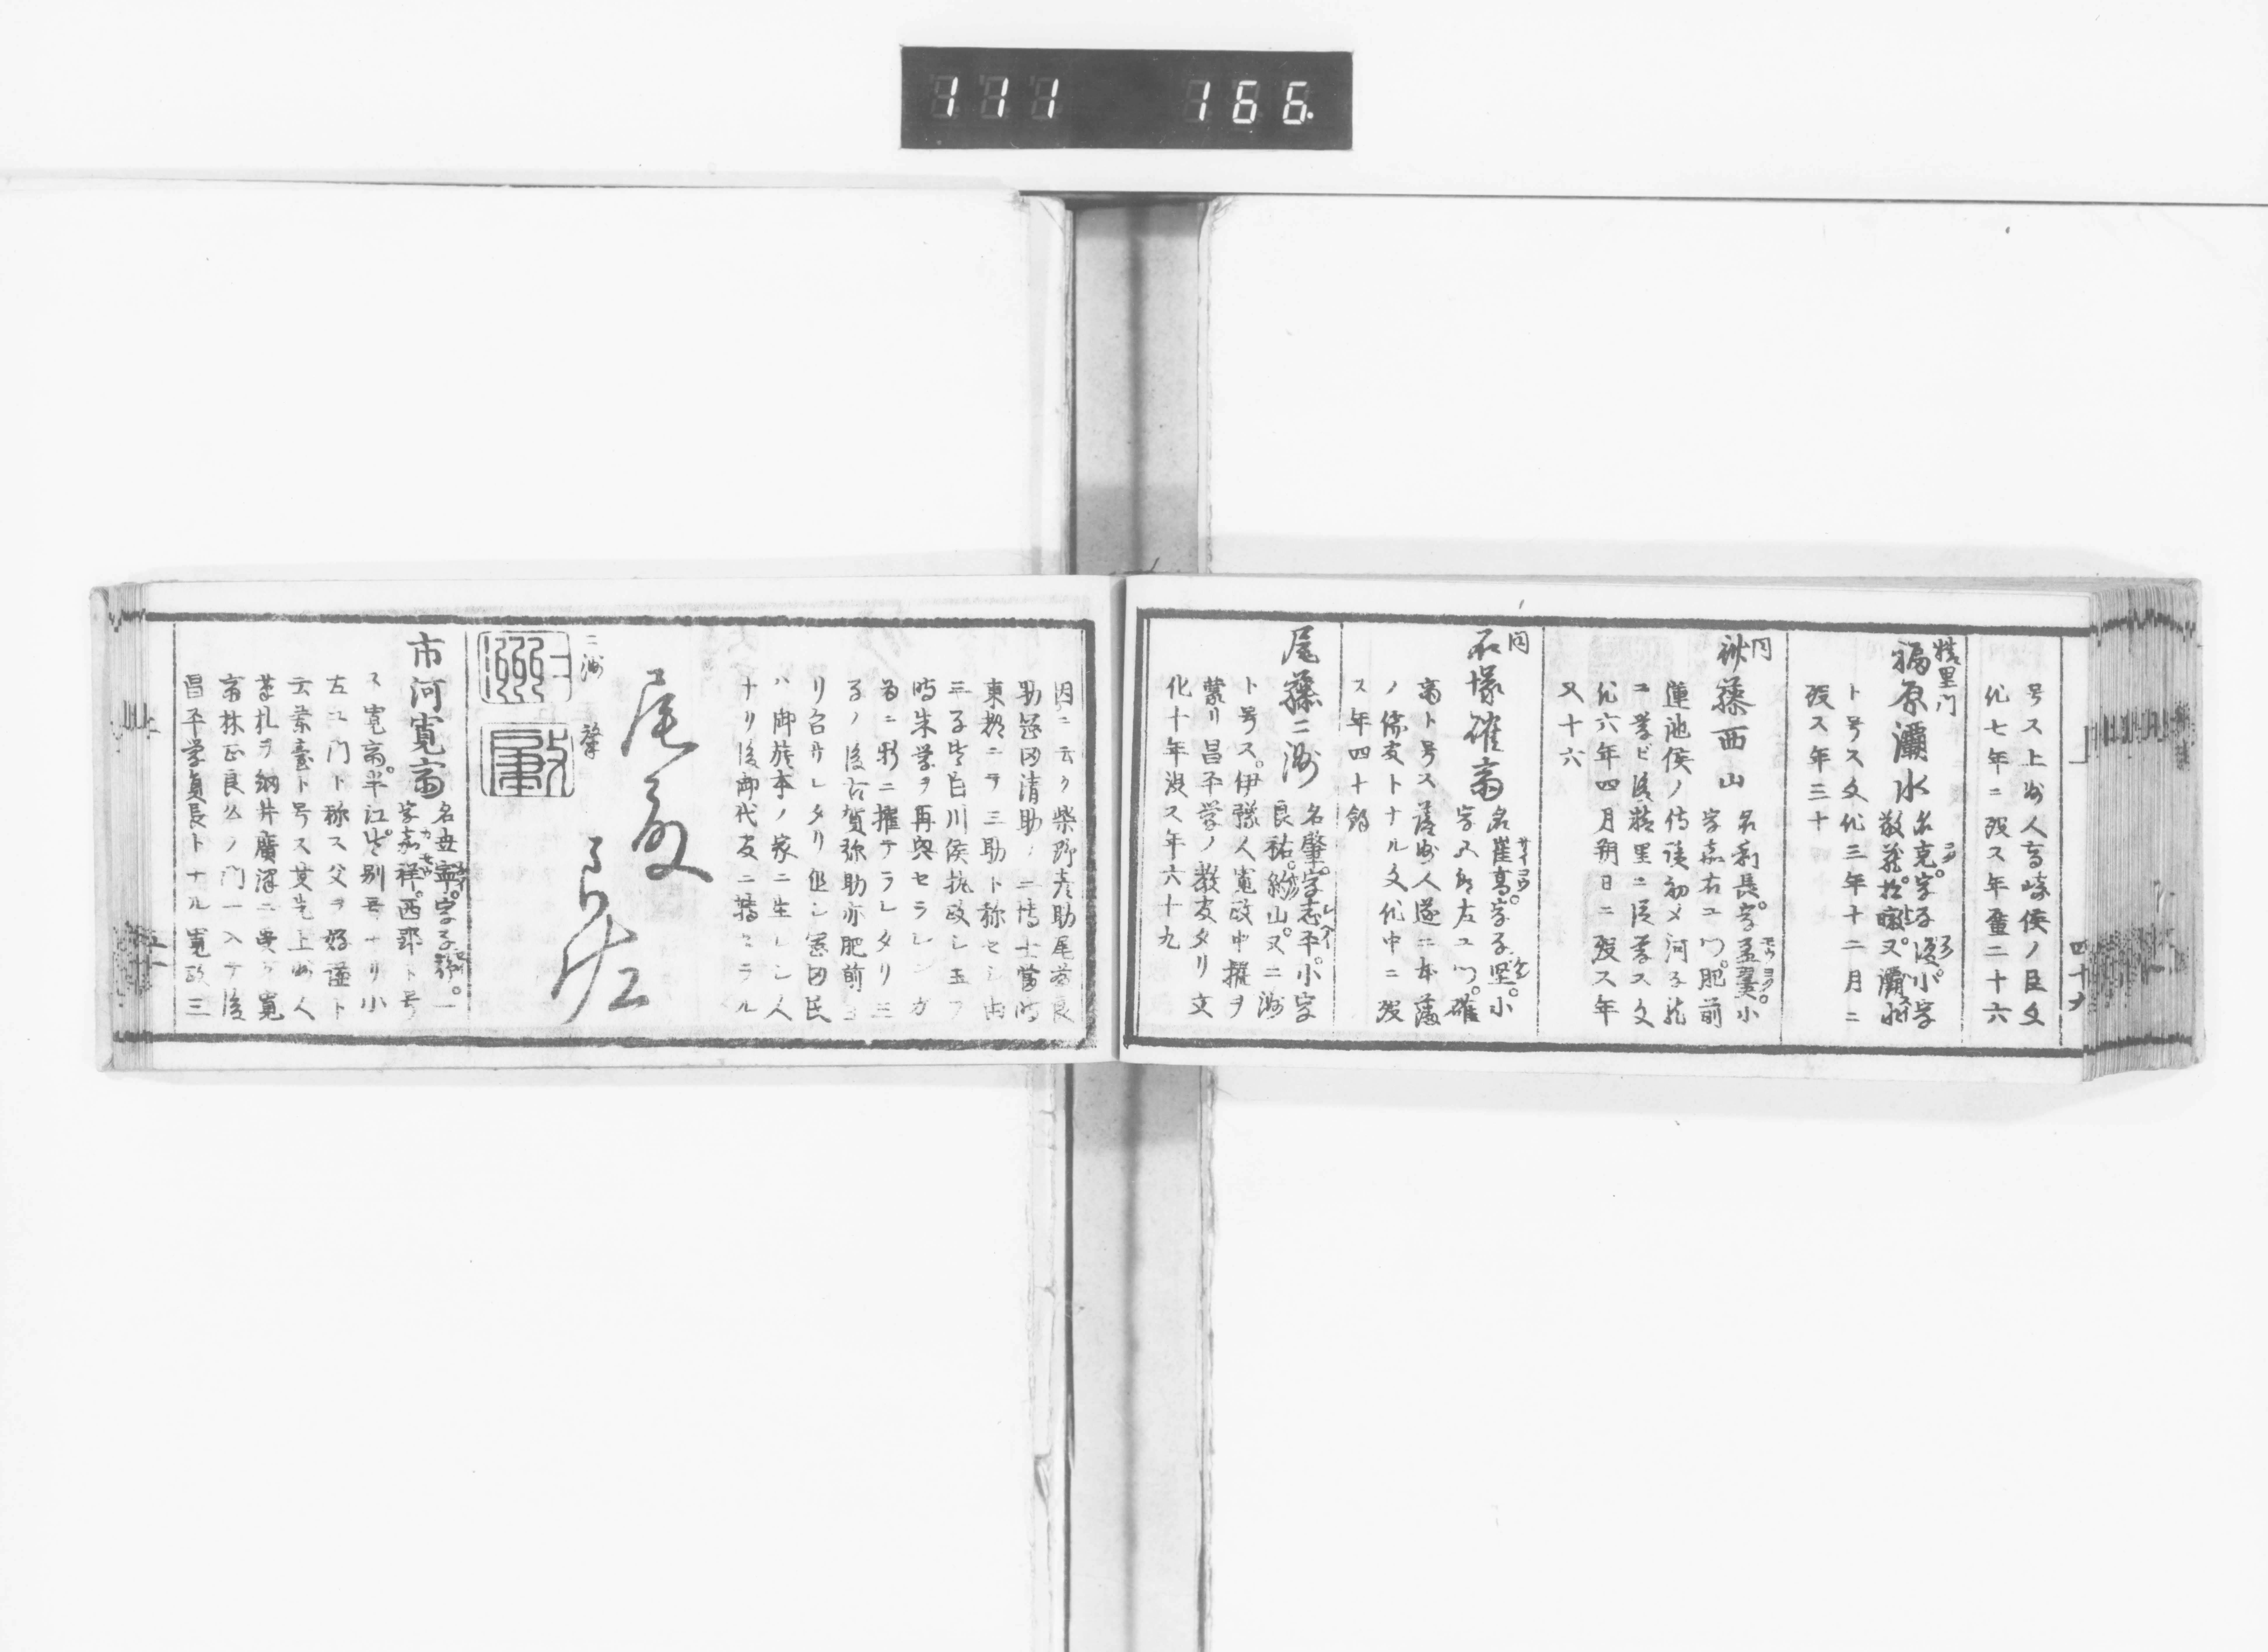 111 166.
号ス上州人高崎侯ノ臣文
化七年ニ歿ス年齒二十六
精里門
福原瀟水
名克。字子復。小字
敬蔵。松暾。又。瀟水
ト号ス文化三年十二月ニ
歿ス年三十
同
藤西山
名利長。字孟翼。小
字嘉右ヱ門。肥前
蓮池侯ノ侍読初メ河子龍
ニ学ビ後精里ニ従学ス文
化六年四月朔日ニ歿ス年
又十六
同
石塚確斎
名崔高。字子堅。小
字又助左ヱ門。確
斎ト号ス薩州人遂ニ本藩
ノ儒友トナル文化中ニ歿
ス年四十餘
尾藤二洲
名肇。字志平。小字
良祐。約山。又ニ洲
ト号ス。伊豫人寛政中擢ヲ
蒙リ昌平学ノ教友タリ文
化十年没ス年六十九
四十
因ニ云ク柴野彦助尾藤良
助岡田清助ノ二博士當時
東都ニテ三助ト称セシ由
三子皆白川侯執政シ玉フ
時朱学ヲ再興セラレシガ
為ニ新ニ擢テラレタリ三
子ノ後古賀弥助亦肥前ヨ
リ召サレタリ但シ寒田民
ハ御旗本ノ家ニ生レシ人
ナリ後御代友ニ轉ニラル
二洲
肇
市河寛斎
名世寧。字子静。一
字嘉祥。西郡ト号
ス寛斎。半江。皆別号ナリ小
左ヱ門ト称ス父ヲ好謙ト
云蘭臺ト号ス其先上州人
業札ヲ細井廣澤ニ受ク寛
斎林正良公ノ門ニ入テ後
昌平学員長トナル寛政三